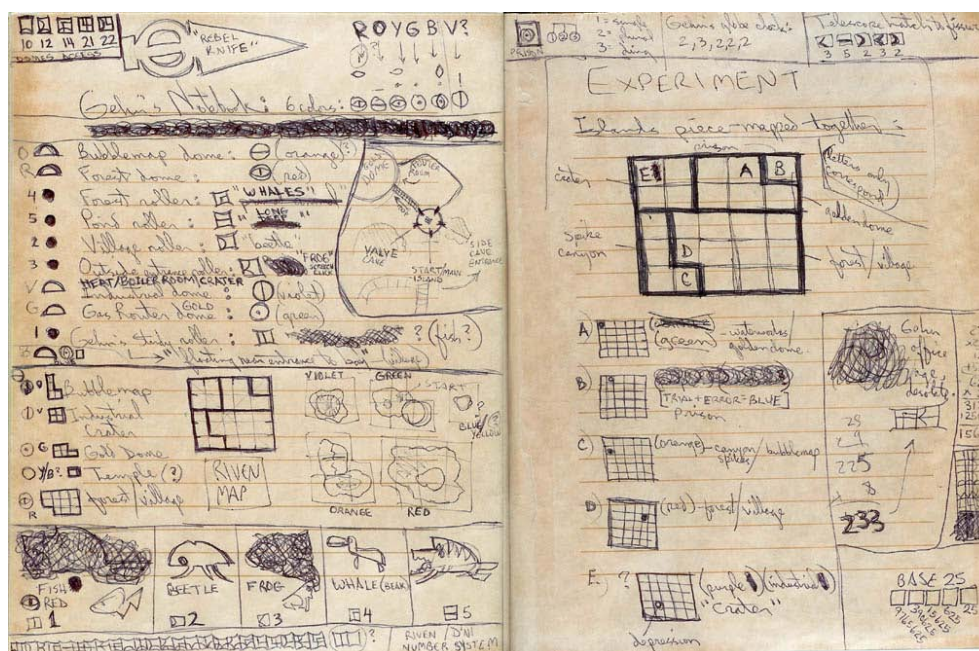 10 12 14 21 22
DOMES ACCESS
"REBEL KNIFE"
R O Y G B V?
Gehn's Notebook: 6 colors:
O Bubblemap dome: (orange)?
R Forest dome: (red)
4 Forest roller: "WHALES"
5 Pond roller: " "
2 Village roller: "beetle"
3 Outside entrance roller: "FROG"
HEAT/BOILER ROOM/CRATER
V Industrial dome: (violet)
GOLD
G Gas Router dome: (green)
1 Gehn's study roller: ? (fish?)
GOLD DOME
ROUTER ROOM
VALVE CAVE
START/MAIN ISLAND
SIDE CAVE ENTRANCE
Bubblemap
V Industrial Crater
G Gold Dome
Y/B? Temple (?)
R forest/village
RIVEN MAP
VIOLET
GREEN
START
?
BLUE/YELLOW
ORANGE
RED
FISH
RED
1
BEETLE
2
FROG
3
WHALE (BEAK)
4
5
?
RIVEN / D'NI NUMBER SYSTEM
PRISON
1 = single
3 = ding
Gehn's globe clock:
2, 3, 2, 2, 2
Telescope hatch
3 5 2 3 2
EXPERIMENT
Islands piece-mapped together:
prison
crater
E A B
(letters only correspond)
golden dome
Spike canyon
D
forest/village
C
A) (green) - waterworks/golden dome.
B) [TRIAL + ERROR = BLUE]
prison
C) (orange) - canyon/bubblemap
spikes
D) (red) - forest/village
E. ? (purple) (industrial)
"Crater"
depression
Gehn office page, desolate.
25
9
225
8
233
BASE 25
9765625
390625
15625
625
25